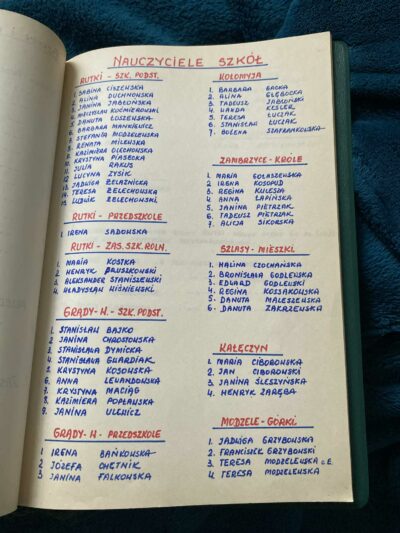 NAUCZYCIELE SZKÓŁ
RUTKI - SZK. PODST.
1. SABINA CISZEWSKA
2. ALINA DUCHNOWSKA
3. JANINA JABŁOŃSKA
4. WIESŁAW KUĆMIEROWSKI
5. DANUTA ŁOSZEWSKA
6. BARBARA MANKIEWICZ
7. STEFANIA MODZELEWSKA
8. RENATA MILEWSKA
9. KAZIMIERA OLĘCHOWSKA
10. KRYSTYNA PIASECKA
11. JULIA RAKUS
12. LUCYNA ZYSIK
13. JADWIGA ŻELAŹNICKA
14. TERESA ŻELECHOWSKA
15. LUDWIK ŻELECHOWSKI
RUTKI - PRZEDSZKOLE
1. IRENA SADOWSKA
RUTKI - ZAS. SZK. ROLN.
1. MARIA KOSTKA
2. HENRYK PRUSZKOWSKI
3. ALEKSANDER STANISZEWSKI
4. WŁADYSŁAW WIŚNIEWSKI
GRĄDY-W. - SZK. PODST.
1. STANISŁAW BAJKO
2. JANINA CHROSTOWSKA
3. STANISŁAWA DYMICKA
4. STANISŁAWA GWARDIAK
5. KRYSTYNA KOSOWSKA
6. ANNA LEWANDOWSKA
7. KRYSTYNA MACIĄG
8. KAZIMIERA POPŁAWSKA
9. JANINA ULEWICZ
GRĄDY-W - PRZEDSZKOLE
1 IRENA BAŃKOWSKA
2 JÓZEFA CHĘTNIK
3 JANINA FALKOWSKA
KOŁOMYJA
1. BARBARA GACKA
2. ALINA GŁĘBOCKA
3. TADEUSZ JABŁOŃSKI
4. WANDA KESLER
5. TERESA ŁUCZAK
6. STANISŁAW ŁUCZAK
7. BOŻENA SZAFRANKOWSKA
ZAMBRZYCE - KRÓLE
1. MARIA GOŁASZEWSKA
2. IRENA KOSOPUD
3. REGINA KULESZA
4. ANNA ŁAPIŃSKA
5. JANINA PIETRZAK
6. TADEUSZ PIETRZAK
7. ALICJA SIKORSKA
SZLASY - MIESZKI
1. HALINA CZOCHAŃSKA
2. BRONISŁAWA GODLEWSKA
3. EDWARD GODLEWSKI
4. REGINA KOSSAKOWSKA
5. DANUTA MALESZEWSKA
6. DANUTA ZAKRZEWSKA
KAŁĘCZYN
1. MARIA CIBOROWSKA
2. JAN CIBOROWSKI
3. JANINA ŚLESZYŃSKA
4. HENRYK ZARĘBA
MODZELE - GÓRKI
1. JADWIGA GRZYBOWSKA
2. FRANCISZEK GRZYBOWSKI
3. TERESA MODZELEWSKA c. E.
4. TERESA MODZELEWSKA